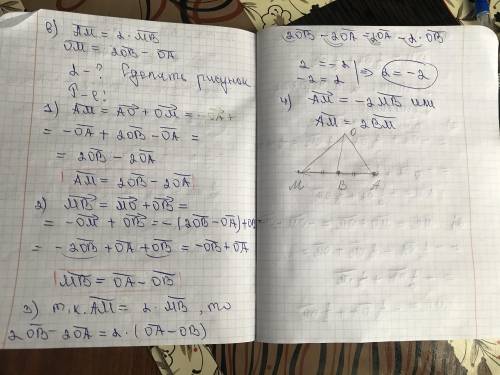 в) A͞M = 2 · M͞B
O͞M = 2O͞B − O͞A
2 - ? Сделать рисунок
Р-е:
1) A͞M = A͞O + O͞M =
= −O͞A + 2O͞B − O͞A =
= 2O͞B − 2O͞A
A͞M = 2O͞B − 2O͞A
2) M͞B = M͞O + O͞B =
= −O͞M + O͞B = −(2O͞B − O͞A) + O͞B
= −2O͞B + O͞A + O͞B = −O͞B + O͞A
M͞B = O͞A − O͞B
3) т.к. A͞M = 2 · M͞B, то
2O͞B − 2O͞A = 2 · (O͞A − O͞B)
2O͞B − 2O͞A = 2O͞A − 2 · O͞B
2 = −2
−2 = 2 | ⇒ 2 = −2
4) A͞M = −2M͞B или
A͞M = 2B͞M
O
M B A